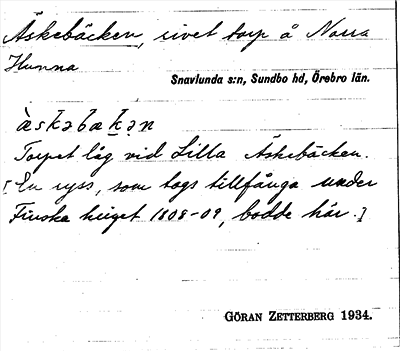 Äskebäcken, rivet torp å Norra
Hunna
Snavlunda s:n, Sundbo hd, Örebro län.
àskəbækən
Torpet låg vid Lilla Äskebäcken.
[En ryss, som togs tillfånga under
Finska kriget 1808-09, bodde här.]
GÖRAN ZETTERBERG 1934.